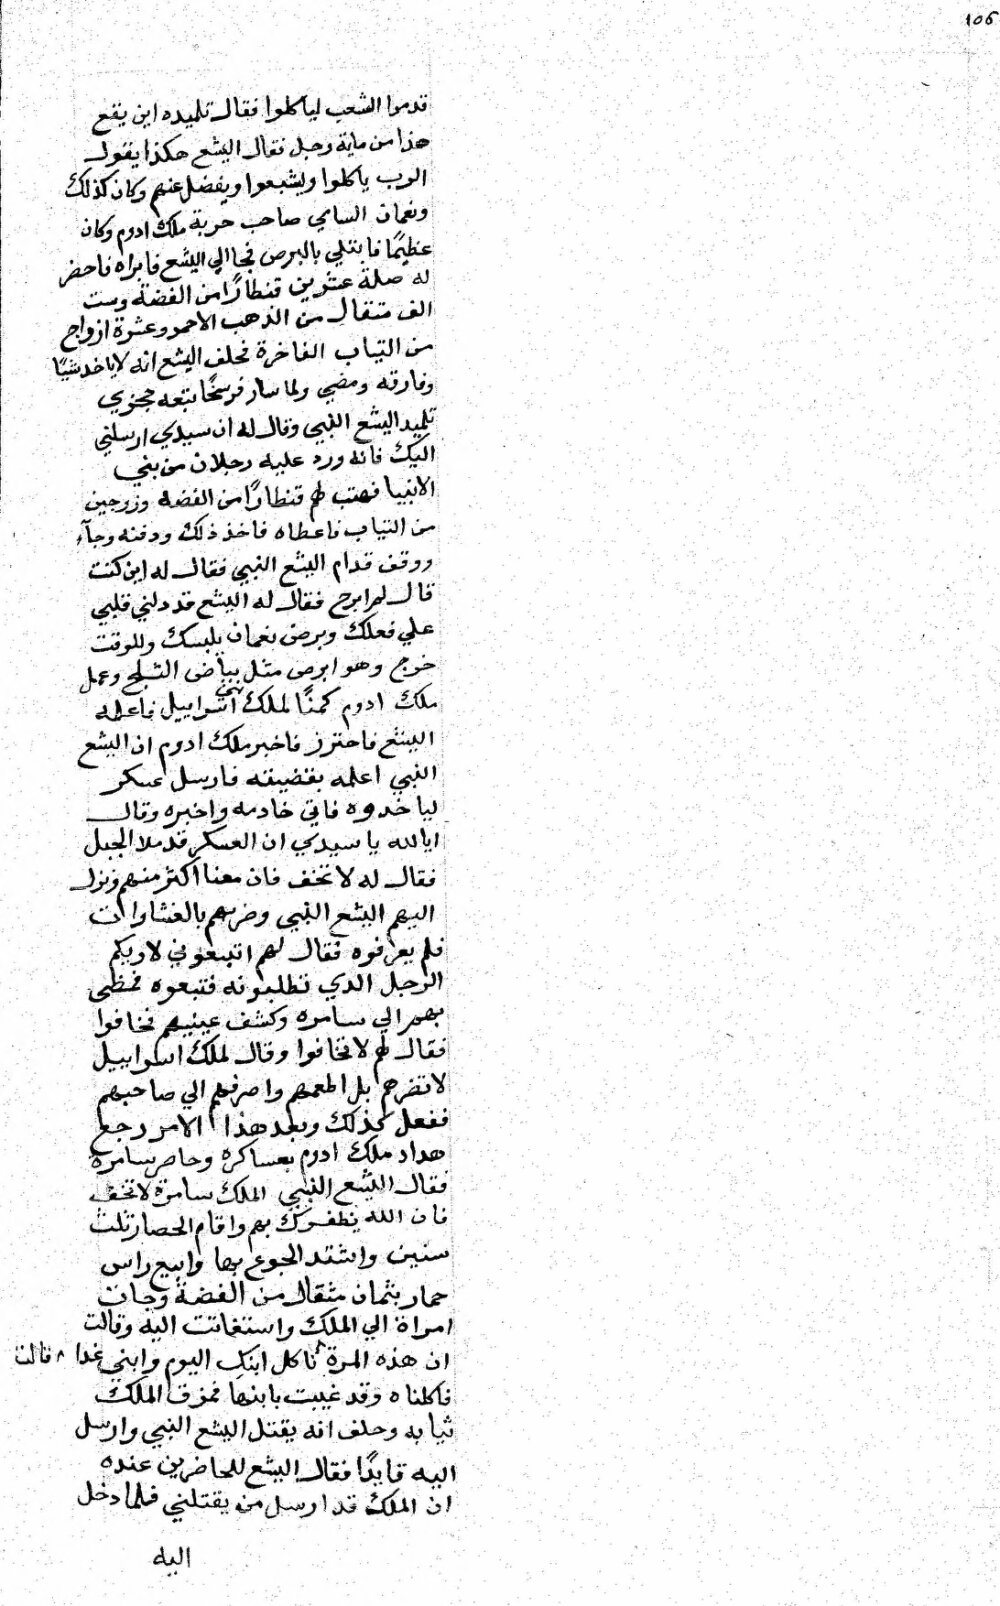 106
قدموا الشعب لياكلوا فقال تلميده اين يقع
هذا من ماية رجل فقال اليشع هكذا يقول
الرب ياكلوا ويشبعوا ويفضل عنهم وكان كذلك
ونعمان السامي صاحب حربة ملك ادوم وكان
عظيمًا فابتلي بالبرص فجا الي اليشع فابراه فاحضر
له صلة عشرين قنطارًا من الفضة وست
الف متقال من الذهب الاحمر وعشرة ازواج
من التياب الفاخرة فحلف اليشع انه لا ياخد شيًا
وفارقه ومضي ولما سار فرسخًا تبعه جحزي
تلميد اليشع النبي وقال له ان سيدي ارسلني
اليك فانه ورد عليه رجلان من بني
الانبيا فهب لهم قنطارًا من الفضه وزوجين
من التياب فاعطاه فاخذ ذلك ودفنه وجآء
ووقف قدام اليشع النبي فقال له اين كنت
قال لم ابرح فقال له اليشع قد دلني قلبي
علي فعلك وبرص نعمان يلبسك وللوقت
خرج وهو ابرص متل بياض التلج وعمل
ملك ادوم كمنًا لملك بني اسراييل فاعلمه
اليشع فاحترز فاخبر ملك ادوم ان اليشع
النبي اعلمه بقضيقه فارسل عسكر
لياخدوه فاتي خادمه واخبره وقال
ايالله يا سيدي ان العسكر قد ملا الجبل
فقال له لا تخف فان معنا اكتر منهم ونزل
اليهم اليشع النبي وضربهم بالغشاوات
فلم يعرفوه فقال لهم اتبعوني لاريكم
الرجل الدي تطلبونه فتبعوه فمضي
بهم الي سامره وكشف عينيهم فخافوا
فقال لهم لا تخافوا وقال لملك اسراييل
لا تضرهم بل اطعمهم واصرفهم الي صاحبهم
ففعل كذلك وبعد هذا الامر رجع
هداد ملك ادوم بعساكره وحاصر سامرة
فقال اليشع النبي الملك سامرة لا تخف
فان الله يظفرك بهم واقام الحصار تلت
سنين واشتد الجوع بها وابيع راس
حمار بتمان متقال من الفضة وجات
امراة الي الملك واستغاتت اليه وقالت
ان هذه المرة ^ ناكل ابنك اليوم وابني غدا ^ قالت
فاكلناه وقد غيبت بابنها فمزق الملك
ثيابه وحلف انه يقتل اليشع النبي وارسل
اليه قايدًا فقال اليشع للحاضرين عنده
ان الملك قد ارسل من يقتلني فلما دخل
اليه